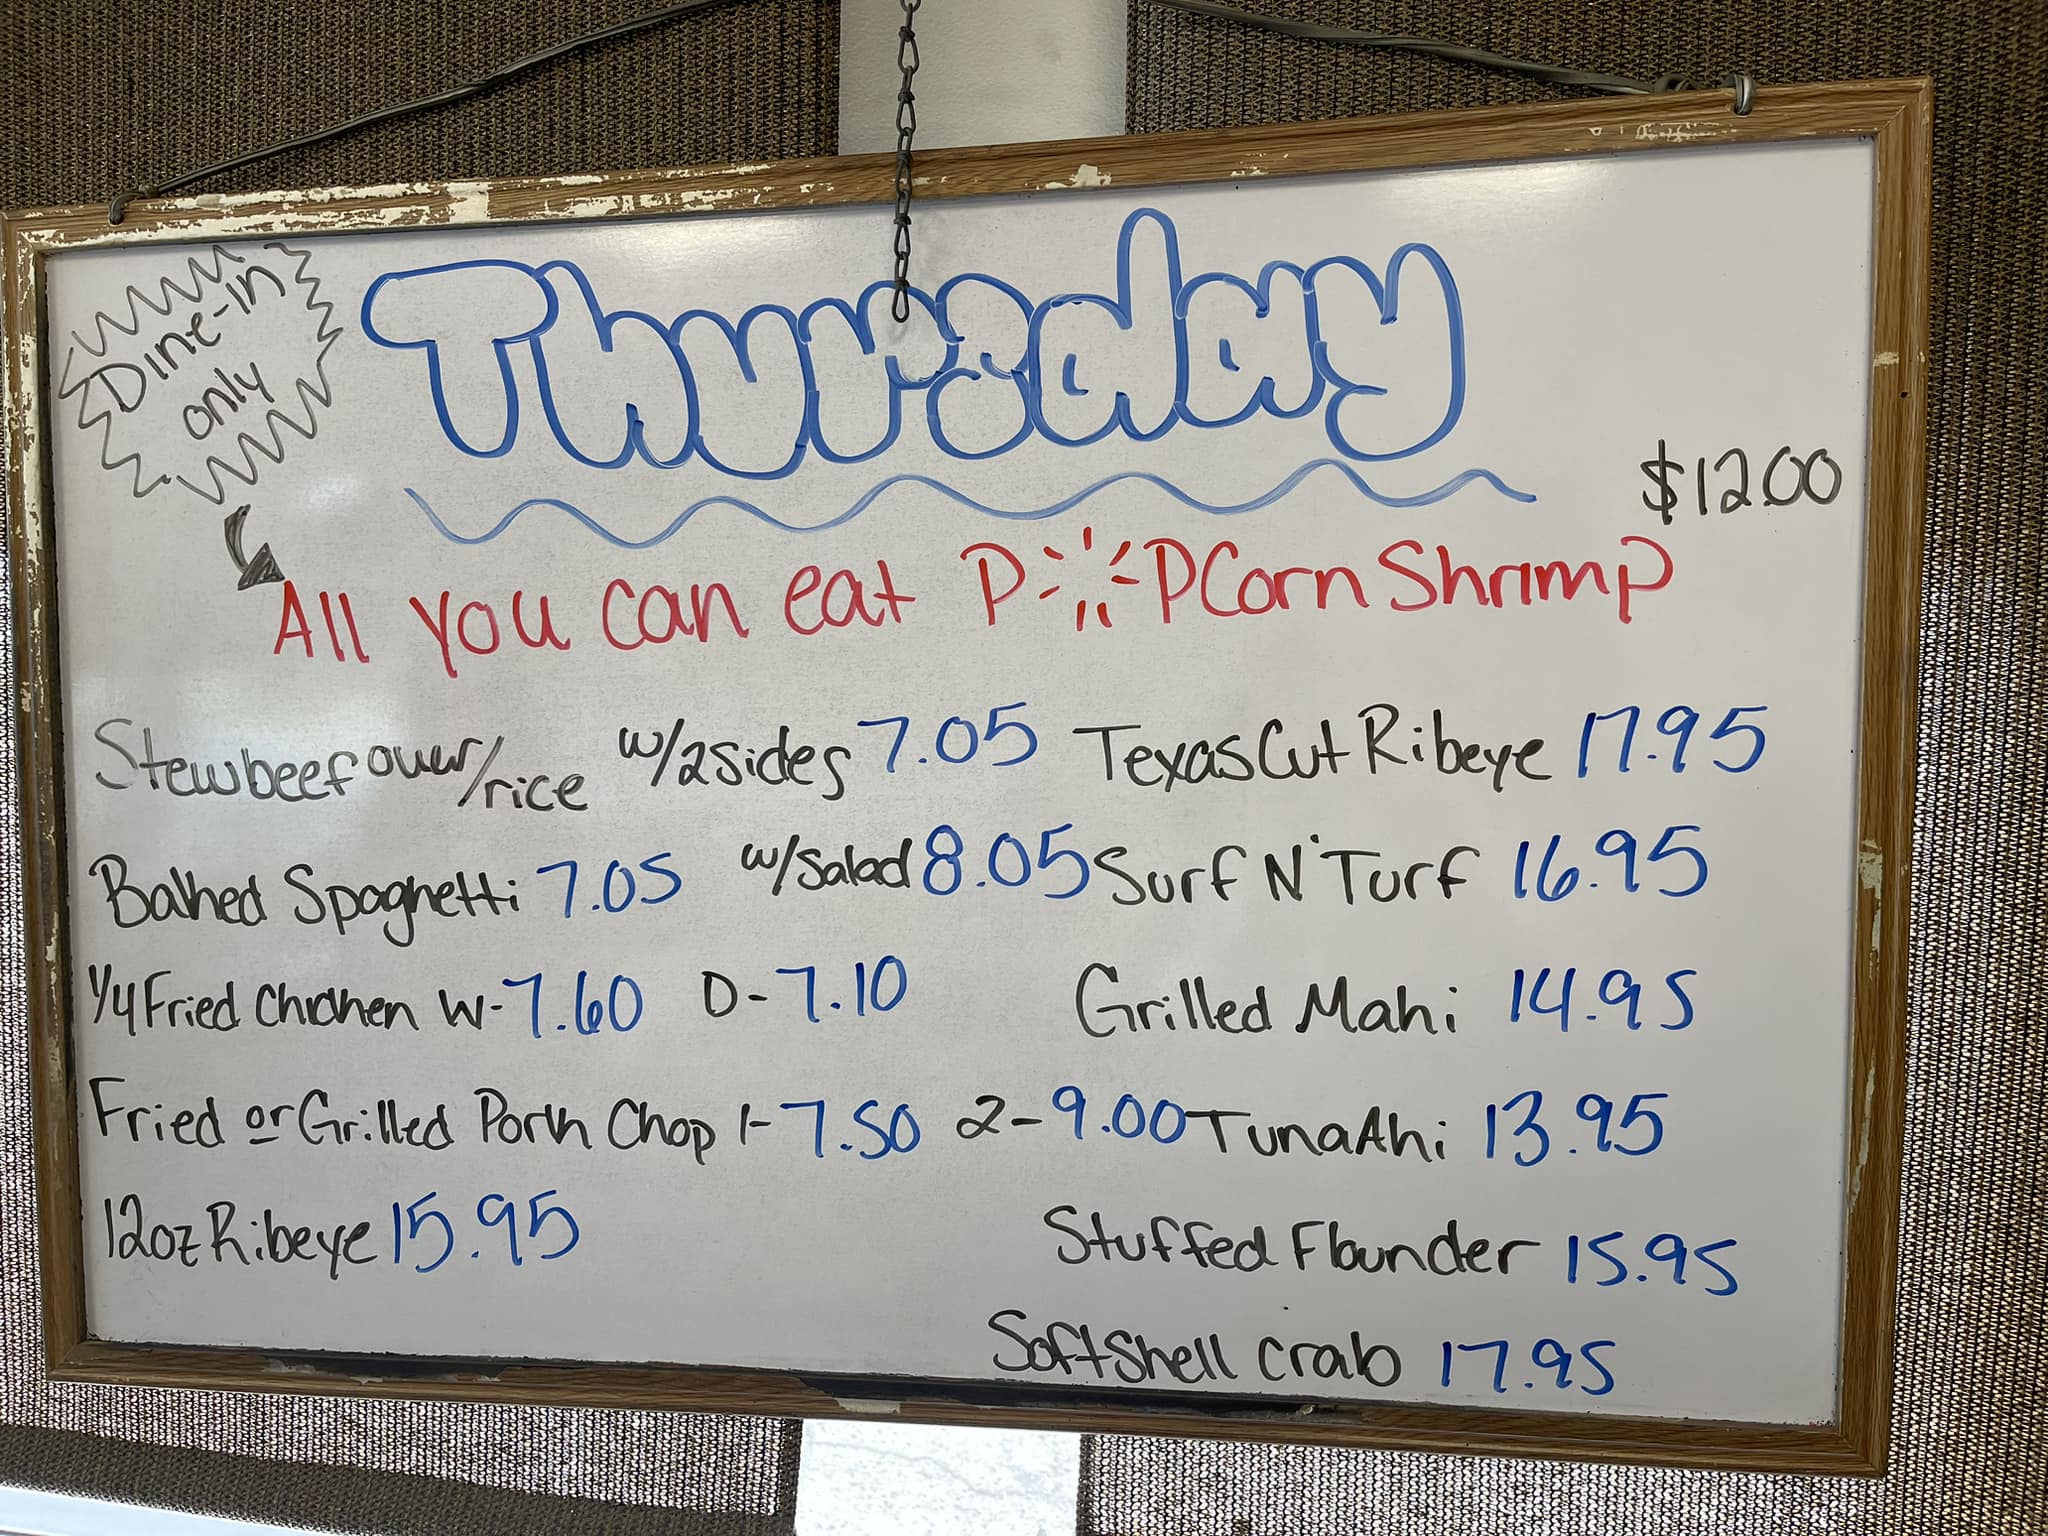 Dine-in
only
Thursday
$12.00
All you can eat POPCorn Shrimp
Stewbeef over/rice w/2sides 7.05
Baked Spaghetti 7.05 w/salad 8.05
1/4 Fried Chicken W-7.60 D-7.10
Fried or Grilled Pork Chop 1-7.50 2-9.00
12oz Ribeye 15.95
Texas Cut Ribeye 17.95
Surf N' Turf 16.95
Grilled Mahi 14.95
Tuna Ahi 13.95
Stuffed Flounder 15.95
Softshell crab 17.95